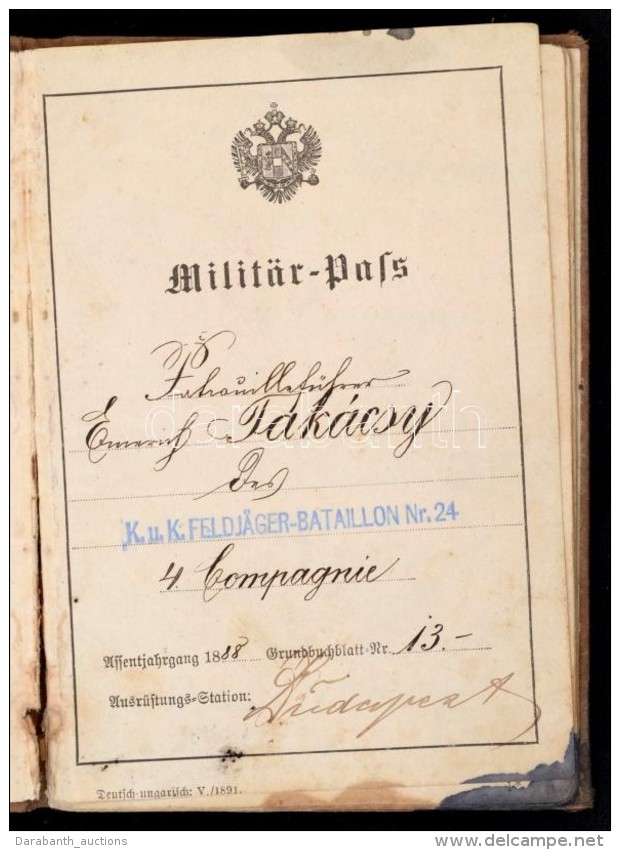 Militär-Paſs
Patrouilleführer
Emerich Takácsy
des
K. u. K. FELDJÄGER-BATAILLON Nr. 24
4. Compagnie
Aſſentjahrgang 1888 Grundbuchblatt-Nr. 13.-
Ausrüſtungs-Station: Budapest
Deutſch-ungariſch: V./1891.
Darabanth_auctions
www.delcampe.net